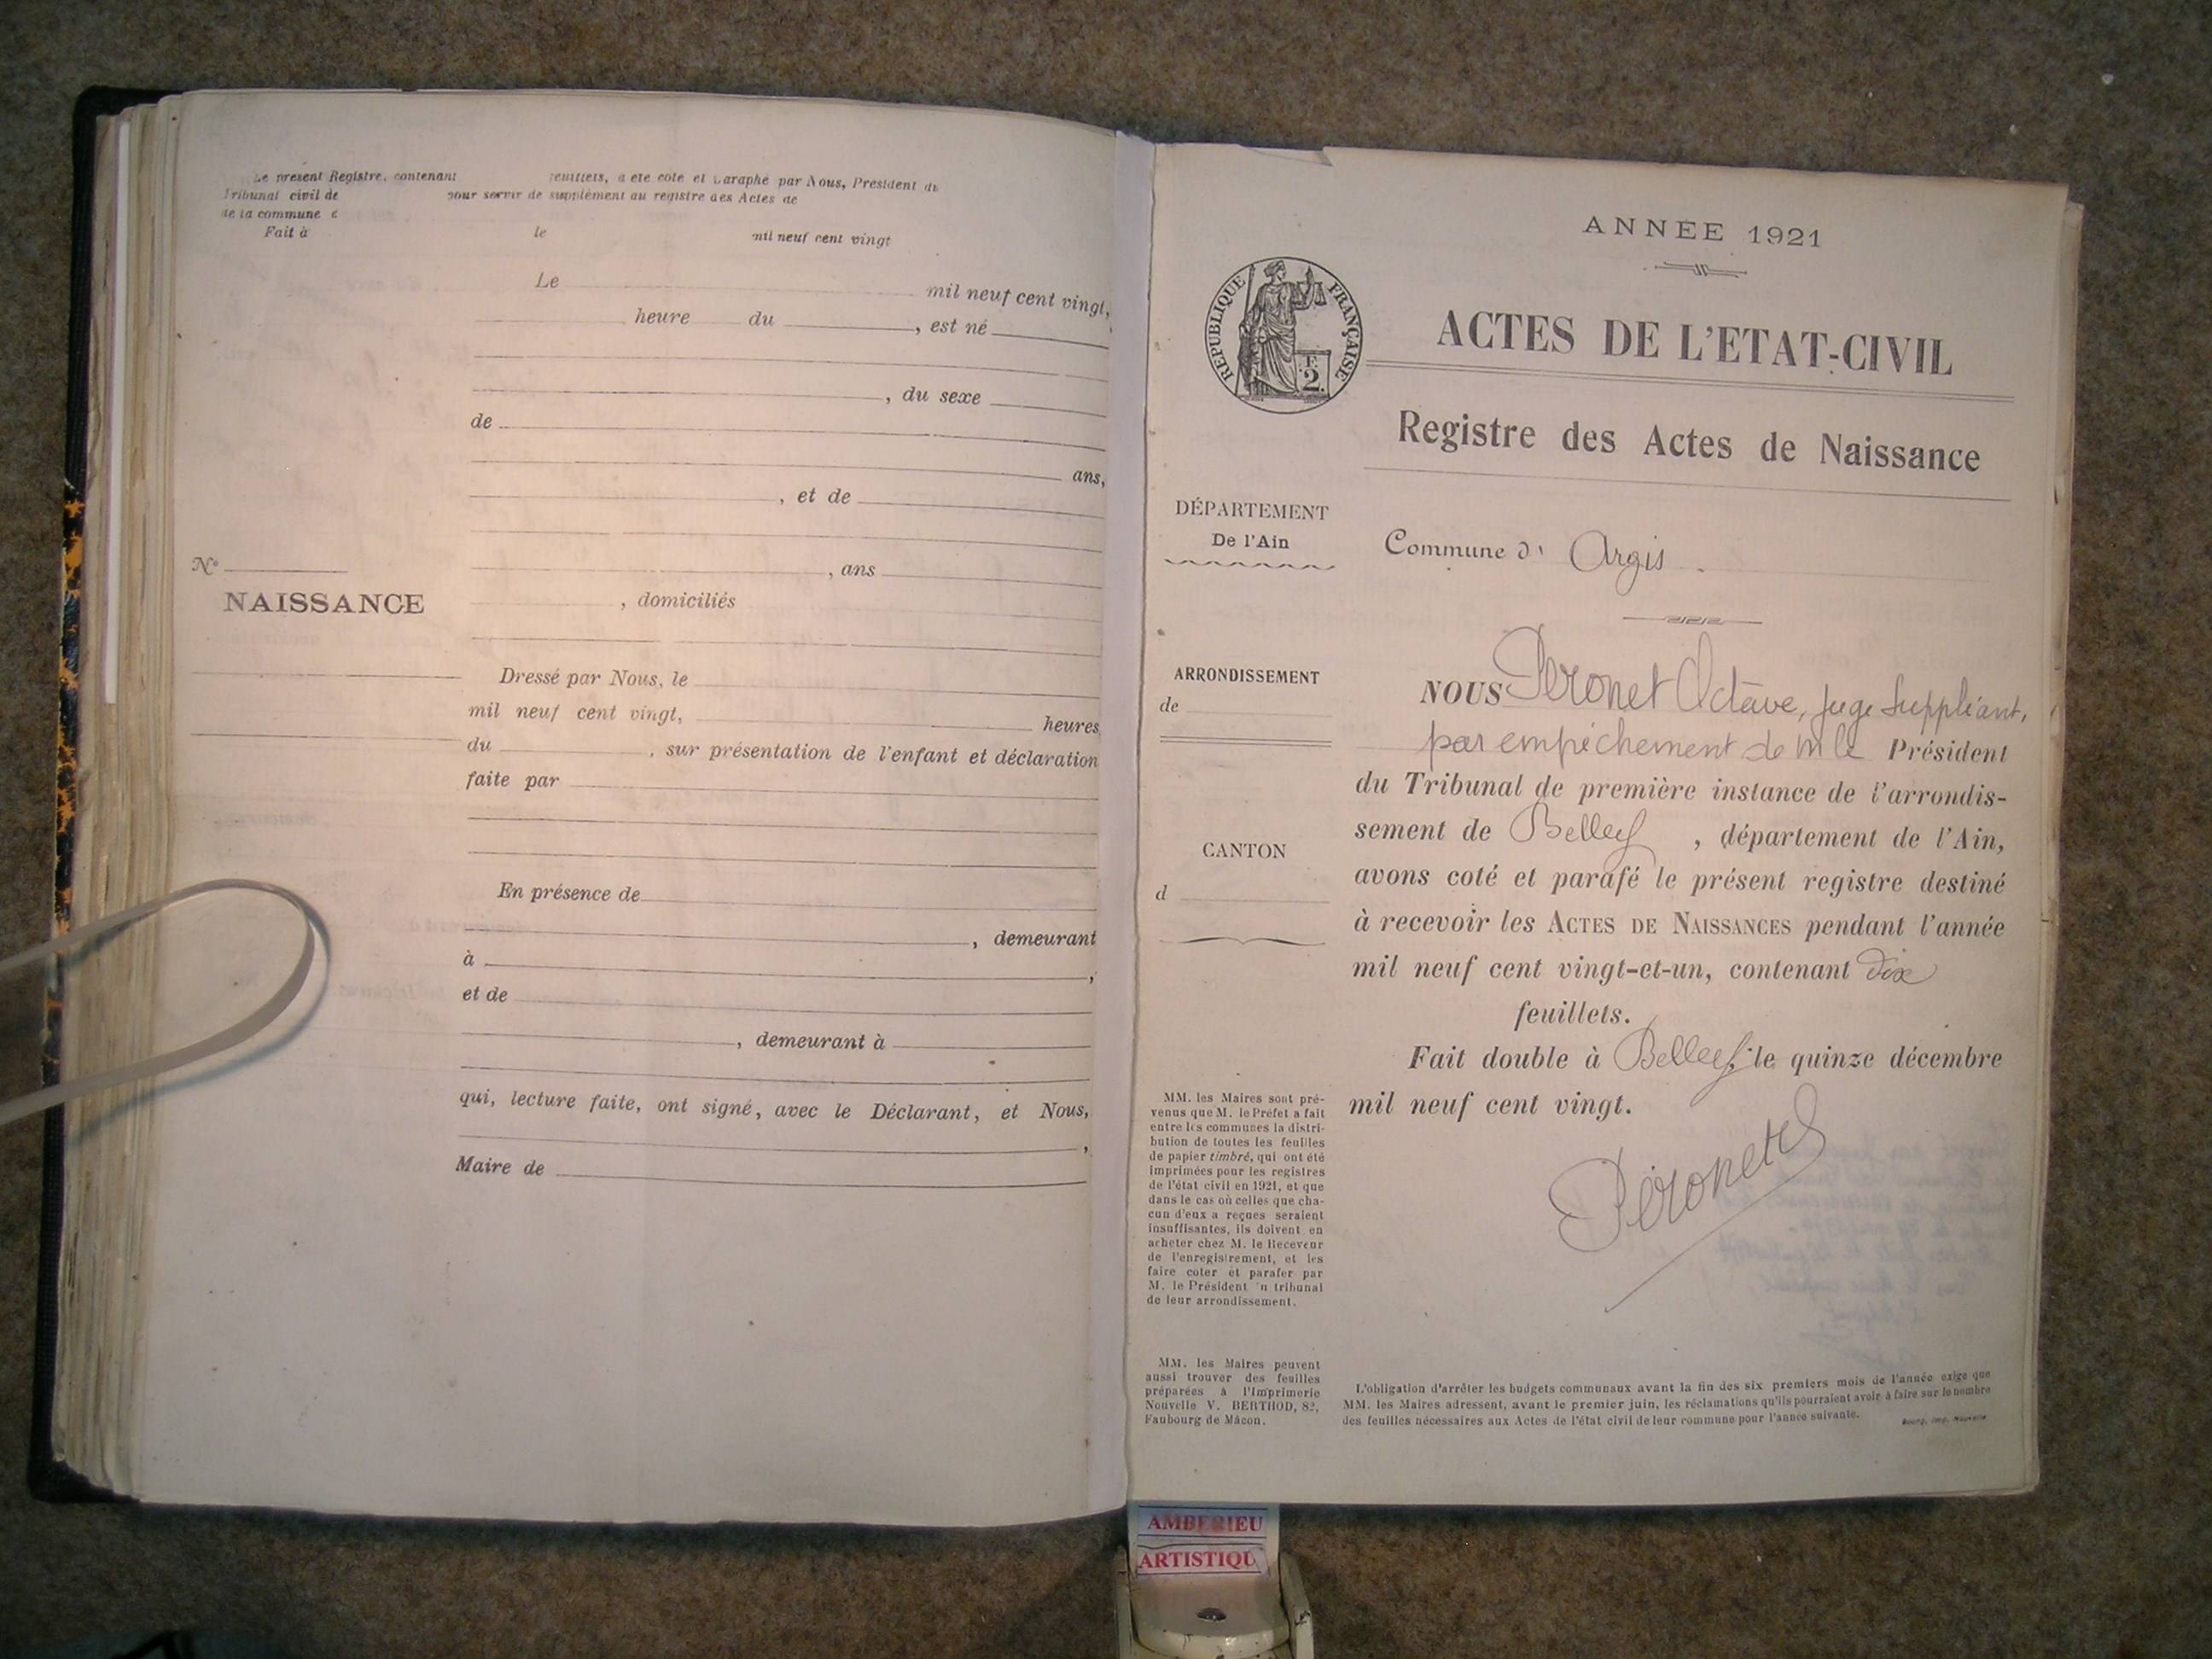 Le present Registre, contenant feuillets, a ete cote et paraphe par Nous, President du
Tribunal civil de pour servir de supplement au registre des Actes de
de la commune d
Fait à le mil neuf cent vingt
Le mil neuf cent vingt,
heure du , est né
, du sexe
de
ans,
, et de
N° , ans
NAISSANCE , domiciliés
Dressé par Nous, le
mil neuf cent vingt, heures
du , sur présentation de l'enfant et déclaration
faite par
En présence de
, demeurant
à ,
et de
, demeurant à
qui, lecture faite, ont signé, avec le Déclarant, et Nous,
,
Maire de
ANNÉE 1921
REPUBLIQUE FRANÇAISE
2
ACTES DE L'ETAT-CIVIL
Registre des Actes de Naissance
DÉPARTEMENT
De l'Ain
ARRONDISSEMENT
de
CANTON
d
MM. les Maires sont pré-
venus que M. le Préfet a fait
entre les communes la distri-
bution de toutes les feuilles
de papier timbré, qui ont été
imprimées pour les registres
de l'état civil en 1921, et que
dans le cas où celles que cha-
cun d'eux a reçues seraient
insuffisantes, ils doivent en
acheter chez M. le Receveur
de l'enregistrement, et les
faire coter et parafer par
M. le Président 'n tribunal
de leur arrondissement.
MM. les Maires peuvent
aussi trouver des feuilles
préparées à l'Imprimerie
Nouvelle V. BERTHOD, 82,
Faubourg de Mâcon.
Commune d' Argis.
NOUS Péronet Octave, juge Suppléant,
par empêchement de M le Président
du Tribunal de première instance de l'arrondis-
sement de Belley , département de l'Ain,
avons coté et parafé le présent registre destiné
à recevoir les ACTES DE NAISSANCES pendant l'année
mil neuf cent vingt-et-un, contenant dix
feuillets.
Fait double à Belley, le quinze décembre
mil neuf cent vingt.
Péronet
L'obligation d'arrêter les budgets communaux avant la fin des six premiers mois de l'année exige que
MM. les Maires adressent, avant le premier juin, les réclamations qu'ils pourraient avoir à faire sur le nombre
des feuilles nécessaires aux Actes de l'état civil de leur commune pour l'année suivante. Bourg, Imp. Nouvelle
AMBERIEU
ARTISTIQU